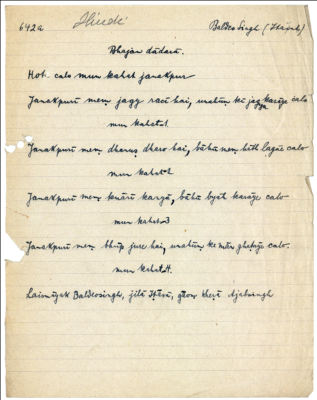 642a Hindi Baldeo Singh (Itāvā)
Bhajan dādarā.
Hot calo mun kahat janakpur
Janakpurī meṃ jagy racī hai, unahūṃ kī jagya karāye calo
mun kahat 1
Janakpurī meṃ dhanuṣ dharo hai, bāhū meṃ hāth lagāe calo
mun kahat 2
Janakpurī meṃ kvārī kanyā, bāhū byāh karāye calo
mun kahat 3
Janakpurī meṃ bhūp jure hai, unahūṃ ke mān ghaṭāye calo.
mun kahat 4.
Baldeosingh, jilā Itāvā, gāon kheṛā Ajabsingh